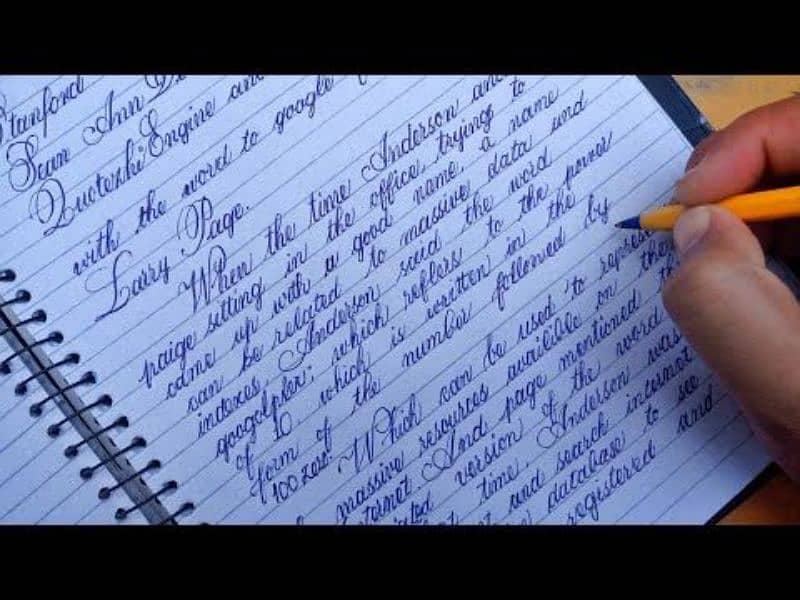 Stanford
Sean Ann
QuotezhiEngine and
with the word to google
Larry Page.
When the time Anderson and
paige sitting in the office, trying to
come up with a good name, a name
can be related to massive data und
indexes, Anderson said the word
googolplex; which reflers to the power
of 10. which is written in the
form of the number followed by
100 zero. Which can be used to represe
massive resources availible on the
ternet. And page mentioned
version of the word
time, Anderson was
and search internet
database to see
registered and